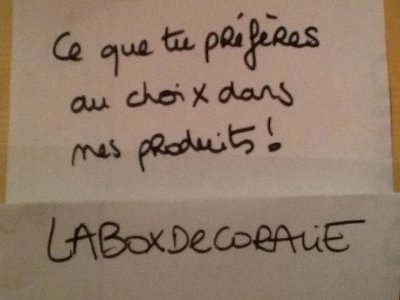 Ce que tu préfères
au choix dans
mes produits !
LABOXDeCORALiE